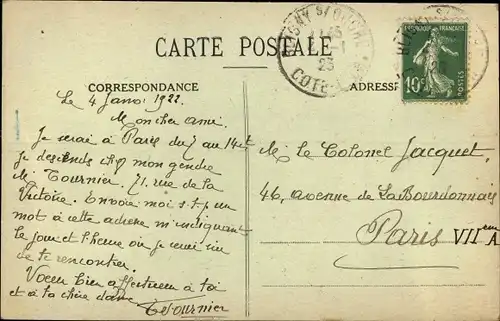 CARTE POSTALE
CORRESPONDANCE
ADRESSE
Le 4 Janv 1922.
Mon cher ami.
Je serai à Paris du 7 au 14 et
je descends chez mon gendre
M. Tournier. 71. rue de la
Victoire. Envoie moi s.t.p un
mot à cette adresse m'indiquant
le jour et l'heure où je serai sûr
de te rencontrer.
Voeux bien affectueux à toi
et à ta chère dame
M. le Colonel Jacquet,
46, avenue de LaBourdonnais
Paris VIIem A
10c
POSTES
COTE